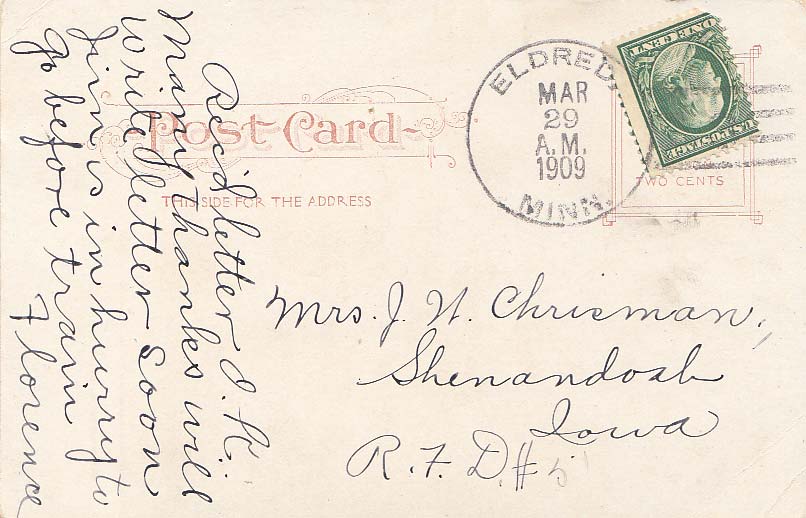 Rec'd letter O.K.
Many thanks will
write letter soon
Jim is in hurry to
go before train
Florence
Post Card
THIS SIDE FOR THE ADDRESS
ELDRED,
MAR
29
A.M.
1909
MINN.
U.S. POSTAGE
ONE CENT
TWO CENTS
Mrs. J. W. Chrisman,
Shenandoah
Iowa
R.F.D. #5